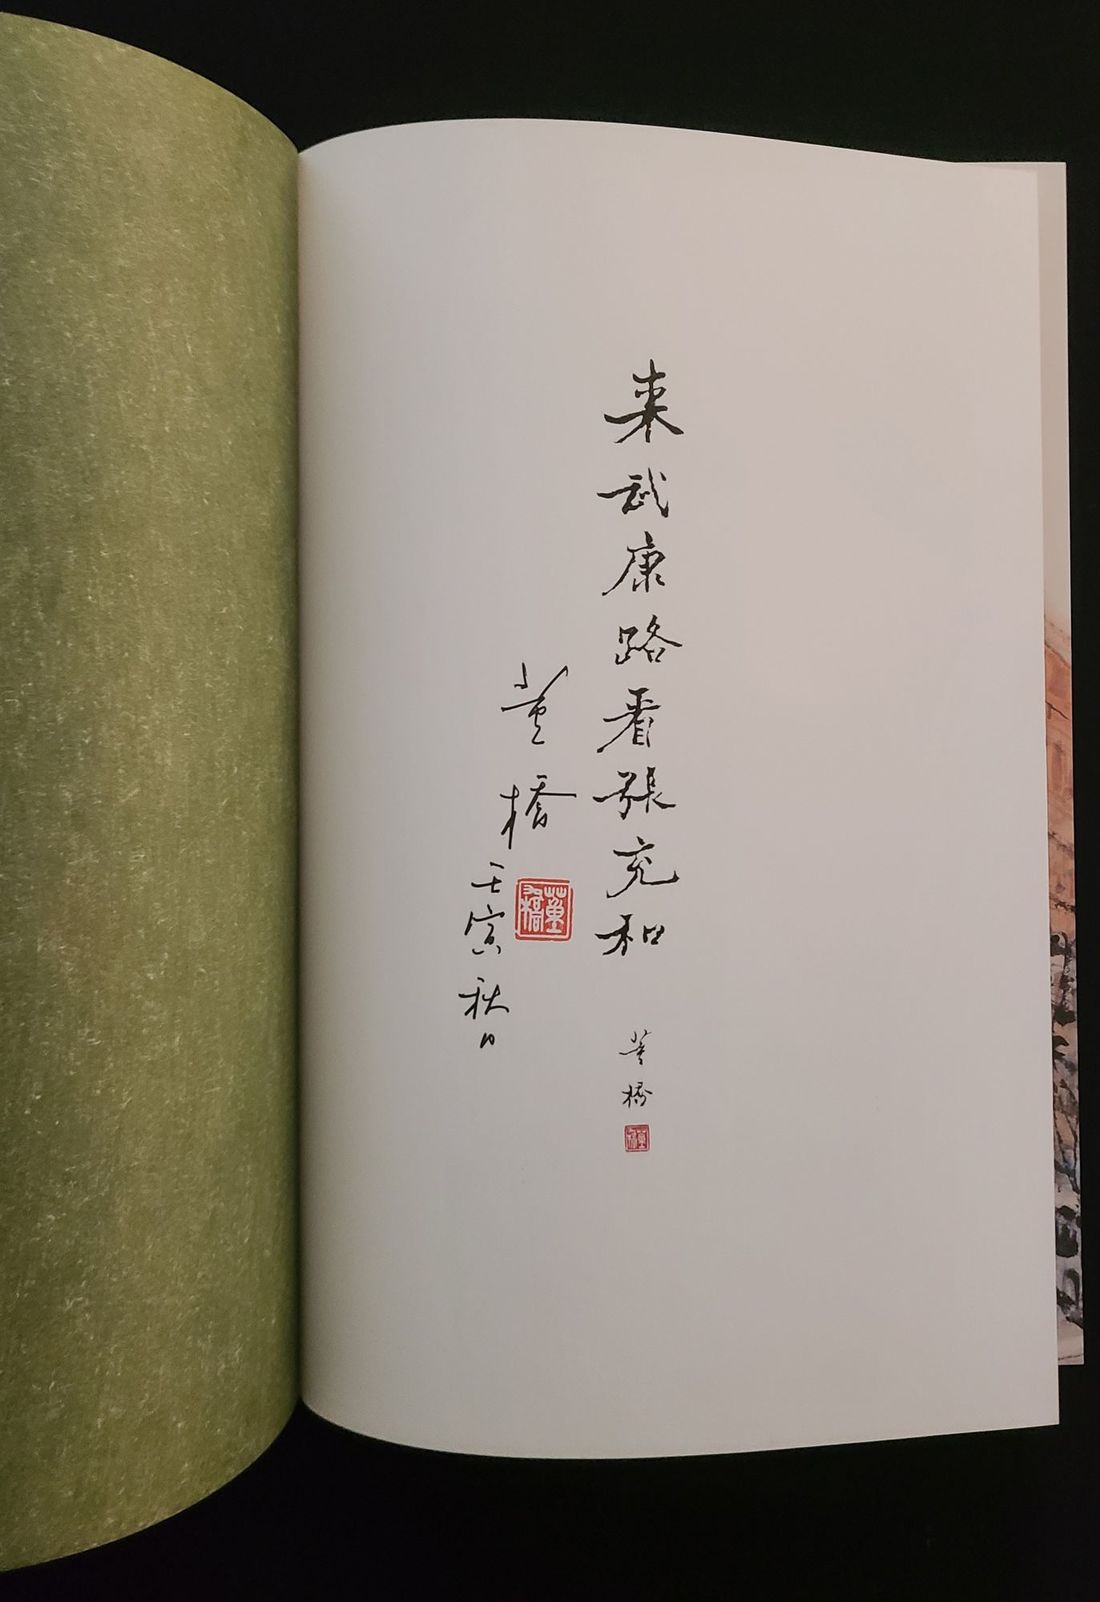 來武康路看張充和
董橋
董橋
董橋
董橋
壬寅秋日